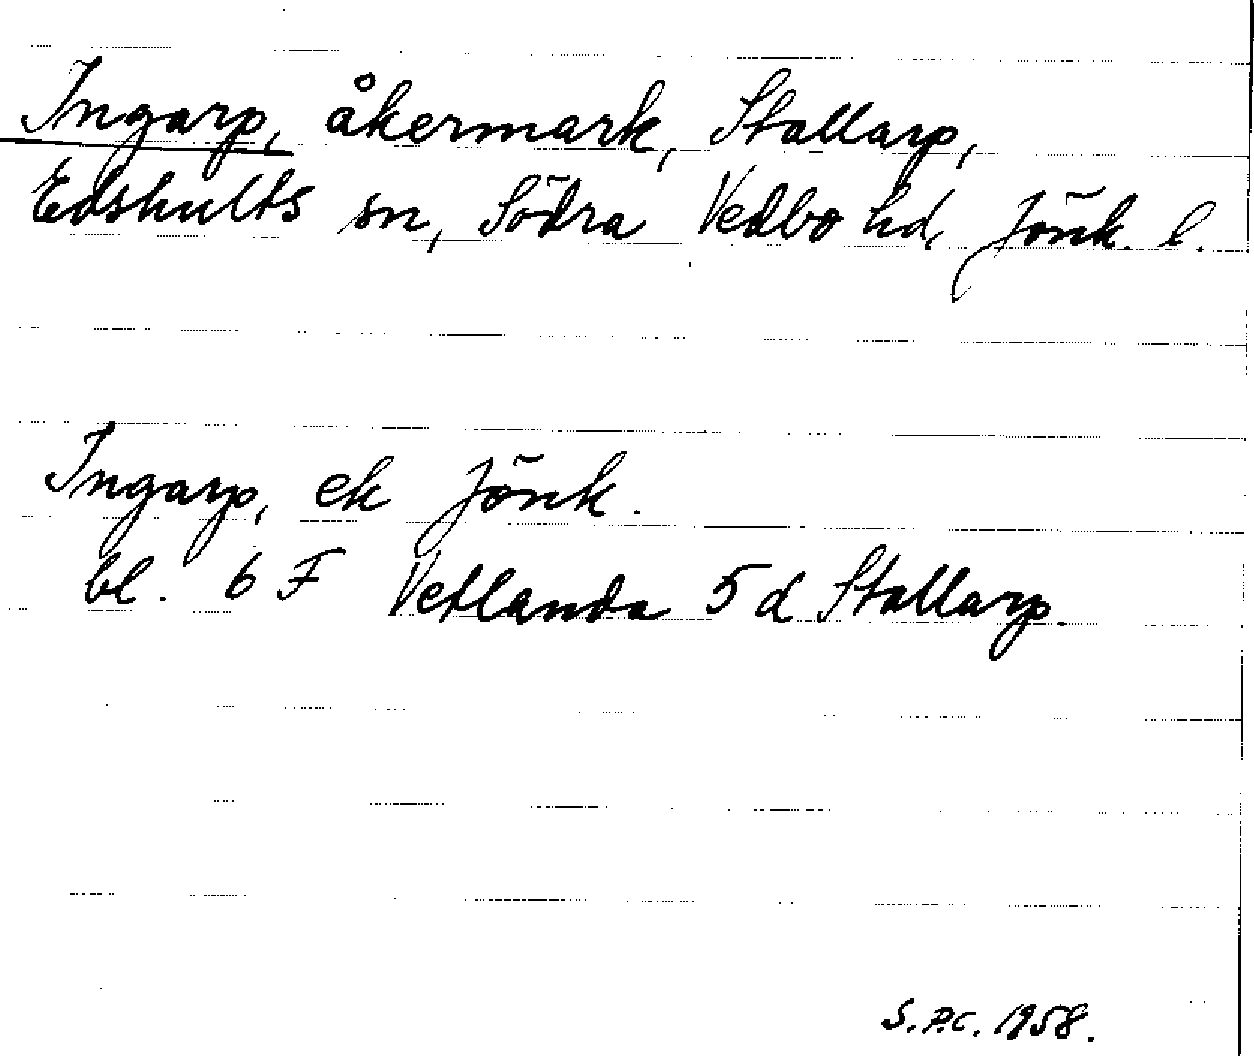 Ingarp, åkermark, Stallarp,
Edshults sn, Södra Vedbo hd, Jönk. l.
Ingarp, ek Jönk.
bl. 6 F Vetlanda 5 d Stallarp.
S.P.C. 1958.